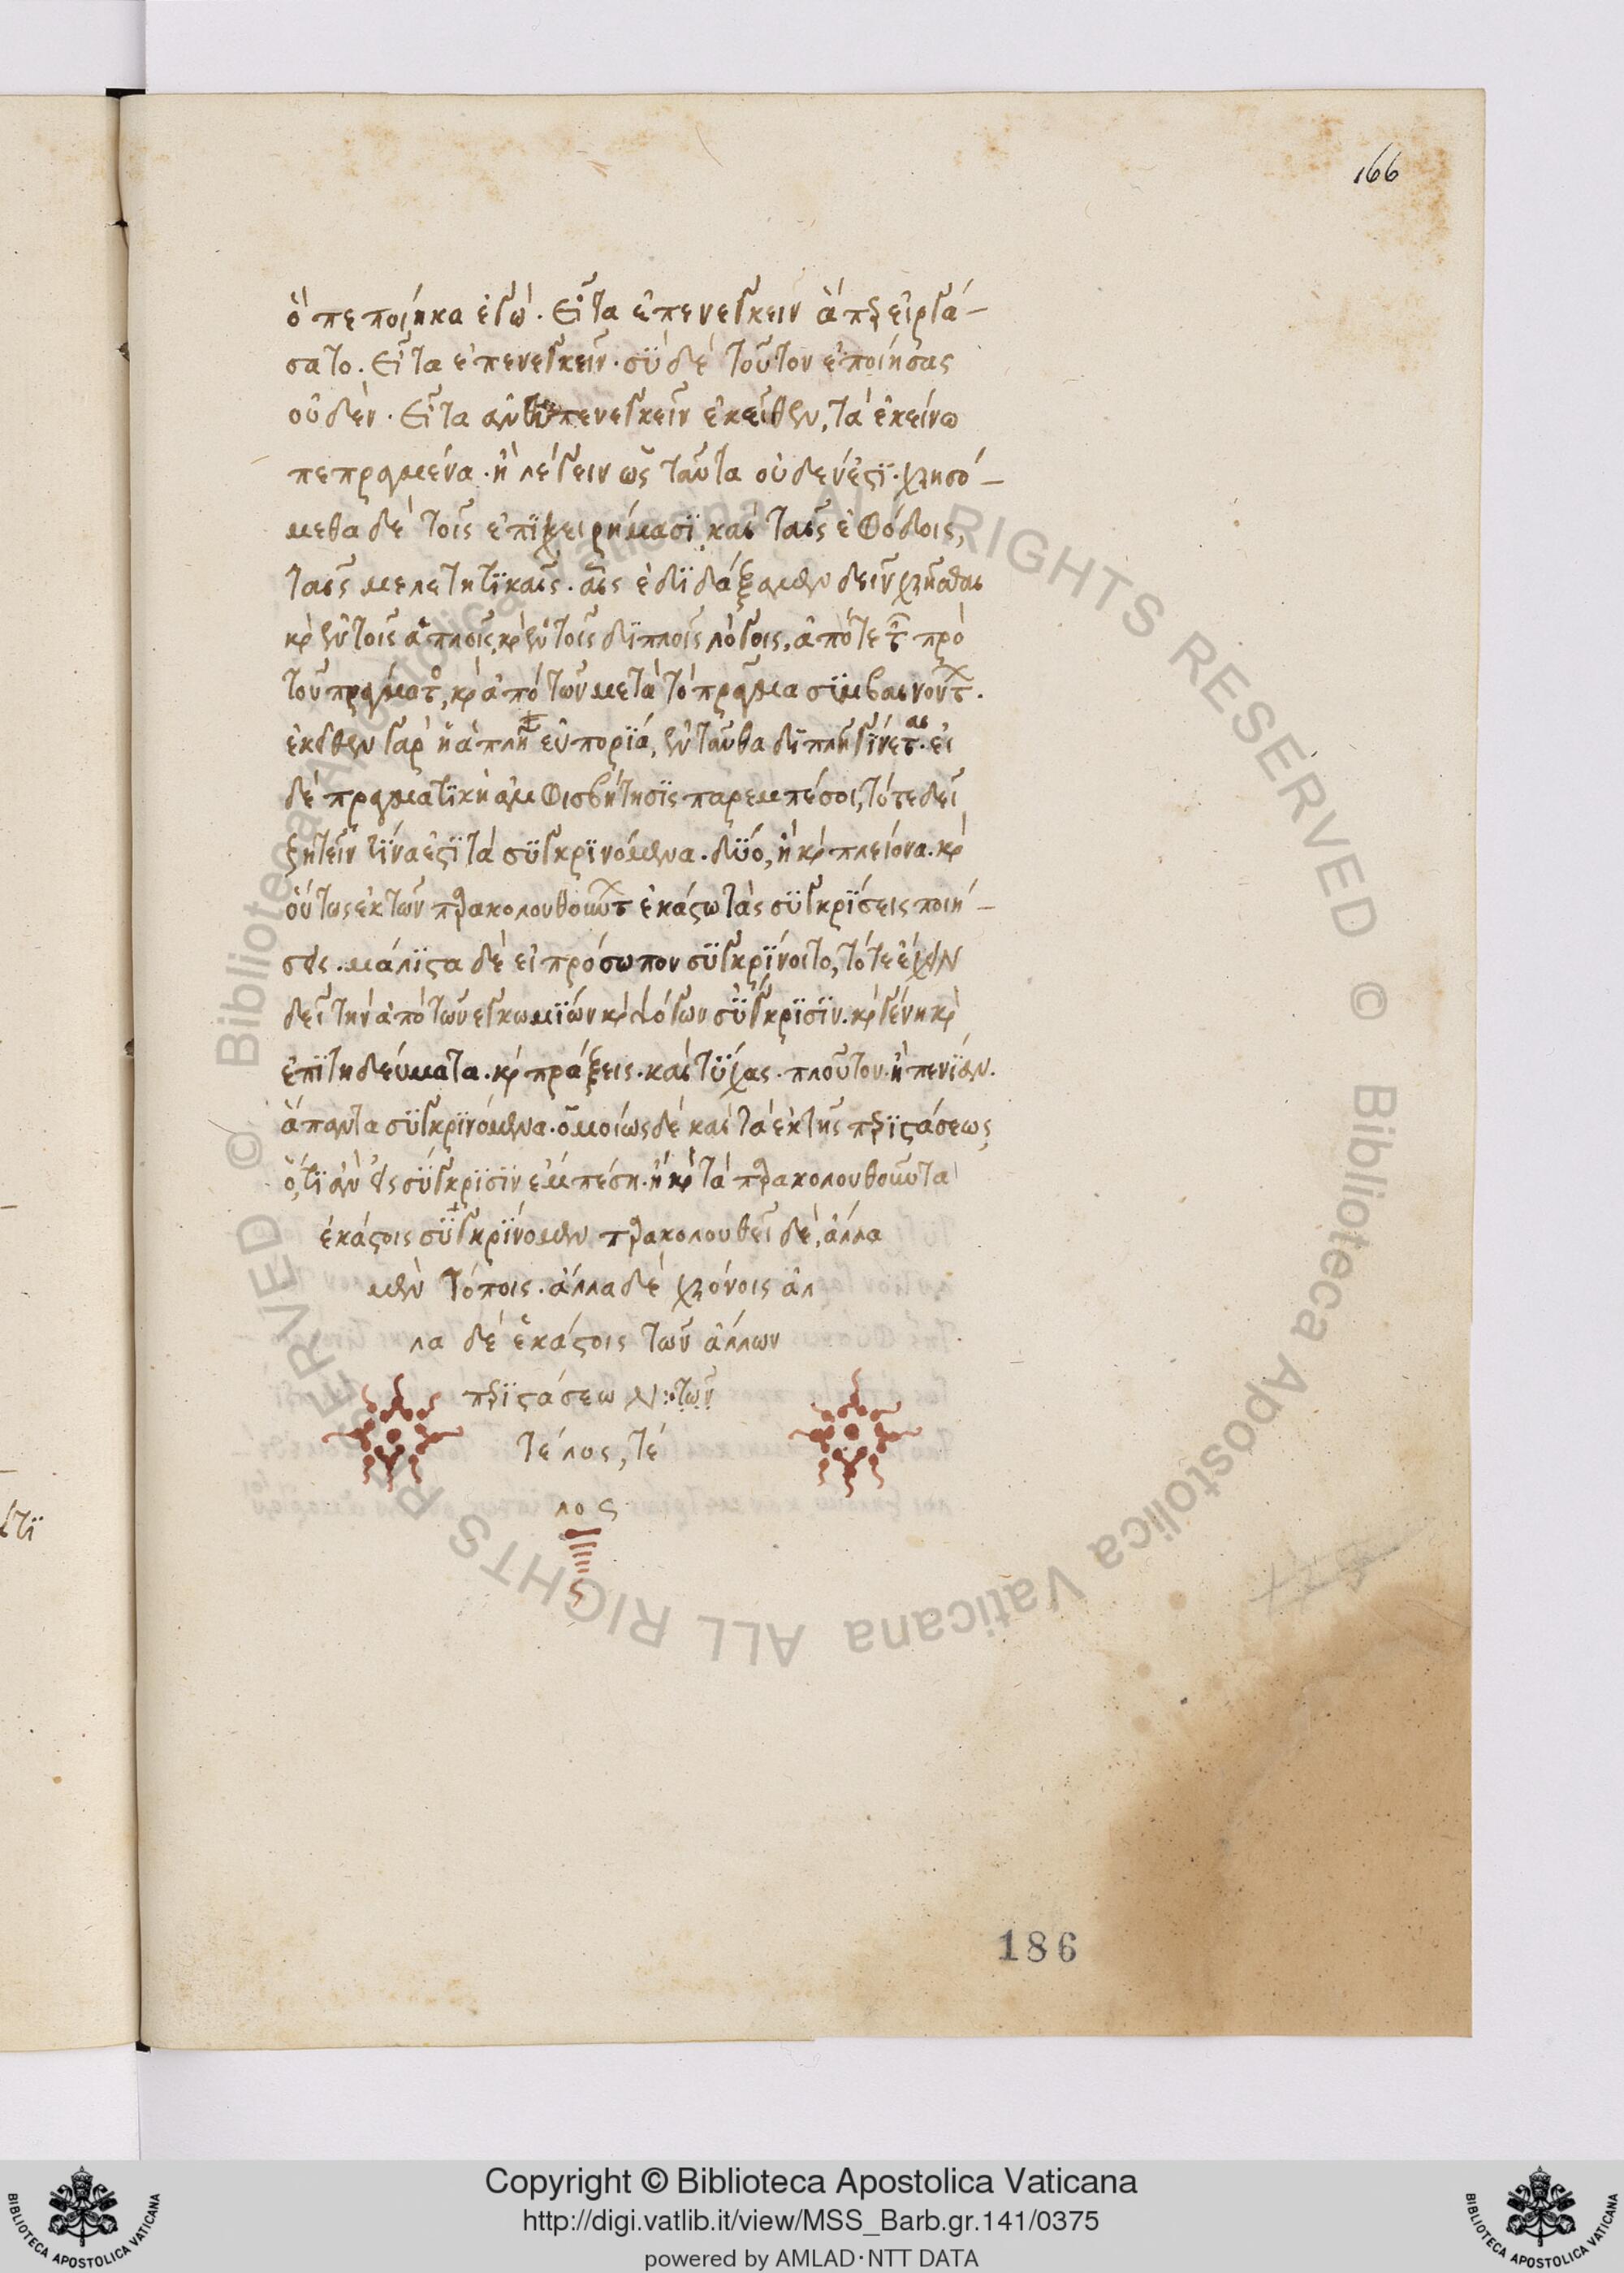 166
ὁ πεποίηκα ἐγώ. Εἶτα ἐπενεγκεῖν ἃ περ εἰργά-
σατο. Εἶτα ἐπενεγκεῖν. σὺ δὲ τούτον ἐποίησας
οὐδὲν. Εἶτα ἀντεπενεγκεῖν ἐκεῖθεν, τὰ ἐκείνω
πεπραγμένα. ἢ λέγειν ὡς ταῦτα οὐδενέστι. χρησό-
μεθα δὲ τοῖς ἐπϊχειρήμασϊ καὶ ταῖς ἐφόδοις,
ταῖς μελετητϊκαῖς. ἃς ἐδϊδάξαμεν δεῖν χρῆσθαι
κὲν τοῖς ἁπλοῖς, κὲν τοῖς δϊπλοῖς λόγοις, ἀπό τε τῶν πρὸ
τοῦ πράγματος, κ ἀπὸ τῶν μετὰ τὸ πρᾶγμα σϋμβαινούντων.
ἐκεῖθεν γὰρ ἡ ἁπλῆ εὐπορϊά, ἐνταῦθα δϊπλῆ γϊνεται. εἰ
δὲ πραγματϊκὴ ἀμφισβήτησϊς παρεμπέσοι, τότε δεῖ
ζητεῖν τϊνα ἐστϊ τὰ σϋγκρϊνόμενα. δϋό, ἢ κ πλείονα. κ
οὕτως ἐκ τῶν παρακολουθούντων ἑκάστω τὰς σϋγκρϊσεις ποιή-
σεις. μάλϊστα δὲ εἰ πρόσωπον σϋγκρϊνοιτο, τότε ἔχειν
δεῖ τὴν ἀπὸ τῶν ἐγκωμϊών κ ψόγων σϋγκρϊσϊν. κ γένη κ
ἐπϊτηδεύματα. κ πράξεις. καὶ τϋχας. πλοῦτον. ἢ πενϊάν.
ἅπαντα σϋγκρϊνόμενα. ὁμοίως δὲ καὶ τὰ ἐκ τῆς περϊστάσεως
ὅ,τϊ ἂν εἰς σϋγκρϊσϊν ἐμπέση. ἢ κ τὰ παρακολουθοῦντα
ἑκάστοις σϋγκρϊνόμεν παρακολουθεῖ δὲ, ἄλλα
μὲν τόποις. ἄλλα δὲ χρόνοις ἄλ
λα δὲ ἑκάστοις τῶν ἄλλων
περϊστάσεων : τῶν
τέλος, τέ
λος
186
Copyright © Biblioteca Apostolica Vaticana
http://digi.vatlib.it/view/MSS_Barb.gr.141/0375
powered by AMLAD·NTT DATA